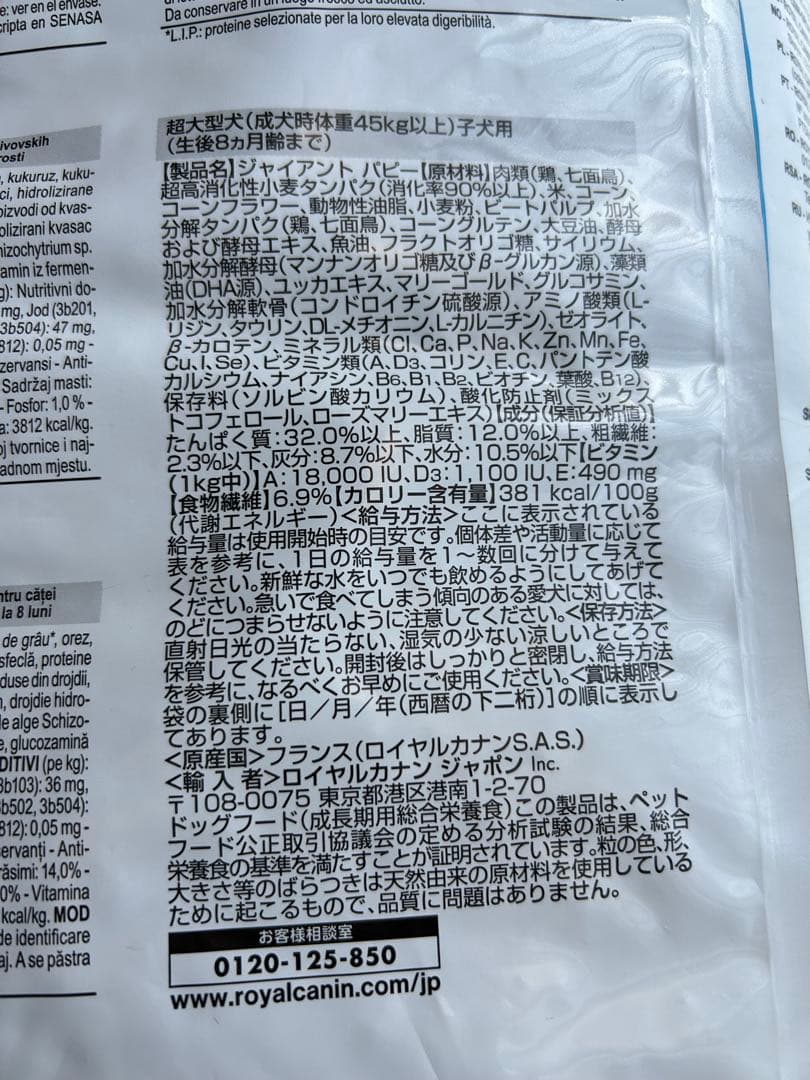 : ver en el envase.
cripta en SENASA
Da conservare in un luogo fresco ed asciutto.
*L.I.P.: proteine selezionate per la loro elevata digeribilità.
ivovskih
rosti
, kukuruz, kuku-
ci, hidrolizirane
oizvodi od kvas-
olizirani kvasac
hizochytrium sp.
tamin iz fermen-
g): Nutritivni do-
mg, Jod (3b201,
3b504): 47 mg,
812): 0,05 mg -
zervansi - Anti-
Sadržaj masti:
- Fosfor: 1,0% -
a: 3812 kcal/kg.
oj tvornice i naj-
adnom mjestu.
ntru căței
la 8 luni
de grâu*, orez,
sfeclă, proteine
duse din drojdii,
n, drojdie hidro-
le alge Schizo-
e, glucozamină
DITIVI (pe kg):
3b103): 36 mg,
3b502, 3b504):
812): 0,05 mg -
servanți - Anti-
răsimi: 14,0% -
0% - Vitamina
kcal/kg. MOD
de identificare
aj. A se păstra
超大型犬(成犬時体重45kg以上)子犬用
(生後8ヵ月齢まで)
【製品名】ジャイアント パピー【原材料】肉類(鶏、七面鳥)、
超高消化性小麦タンパク(消化率90%以上)、米、コーン、
コーンフラワー、動物性油脂、小麦粉、ビートパルプ、加水
分解タンパク(鶏、七面鳥)、コーングルテン、大豆油、酵母
および酵母エキス、魚油、フラクトオリゴ糖、サイリウム、
加水分解酵母(マンナンオリゴ糖及びβ-グルカン源)、藻類
油(DHA源)、ユッカエキス、マリーゴールド、グルコサミン、
加水分解軟骨(コンドロイチン硫酸源)、アミノ酸類(L-
リジン、タウリン、DL-メチオニン、L-カルニチン)、ゼオライト、
β-カロテン、ミネラル類(Cl、Ca、P、Na、K、Zn、Mn、Fe、
Cu、I、Se)、ビタミン類(A、D3、コリン、E、C、パントテン酸
カルシウム、ナイアシン、B6、B1、B2、ビオチン、葉酸、B12)、
保存料(ソルビン酸カリウム)、酸化防止剤(ミックス
トコフェロール、ローズマリーエキス)【成分(保証分析値)】
たんぱく質:32.0%以上、脂質:12.0%以上、粗繊維:
2.3%以下、灰分:8.7%以下、水分:10.5%以下【ビタミン
(1kg中)】A:18,000 IU、D3:1,100 IU、E:490 mg
【食物繊維】6.9%【カロリー含有量】381 kcal/100g
(代謝エネルギー)<給与方法>ここに表示されている
給与量は使用開始時の目安です。個体差や活動量に応じて
表を参考に、1日の給与量を1〜数回に分けて与えて
ください。新鮮な水をいつでも飲めるようにしてあげて
ください。急いで食べてしまう傾向のある愛犬に対しては、
のどにつまらせないように注意してください。<保存方法>
直射日光の当たらない、湿気の少ない涼しいところで
保管してください。開封後はしっかりと密閉し、給与方法
を参考に、なるべくお早めにご使用ください。<賞味期限>
袋の裏側に [日/月/年(西暦の下二桁)]の順に表示し
てあります。
<原産国>フランス(ロイヤルカナンS.A.S.)
<輸入者>ロイヤルカナン ジャポン Inc.
〒108-0075 東京都港区港南1-2-70
ドッグフード(成長期用総合栄養食)この製品は、ペット
フード公正取引協議会の定める分析試験の結果、総合
栄養食の基準を満たすことが証明されています。粒の色、形、
大きさ等のばらつきは天然由来の原材料を使用している
ために起こるもので、品質に問題はありません。
お客様相談室
0120-125-850
www.royalcanin.com/jp